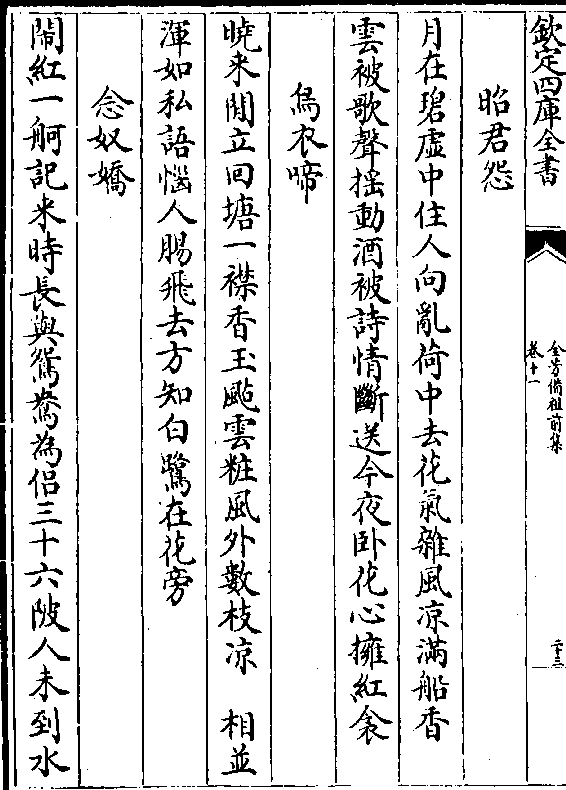 欽定四庫全書
全芳備祖前集
卷十一
二十三
昭君怨
月在碧虛中住人向亂荷中去花氣雜風凉滿船香
雲被歌聲揺動酒被詩情斷送今夜卧花心擁紅衾
烏衣啼
曉来閒立回塘一襟香玉颭雲粧風外數枝凉　相並
渾如私語惱人腸飛去方知白鷺在花旁
念奴嬌
閙紅一舸記来時長與鴛鴦為侣三十六陂人未到水